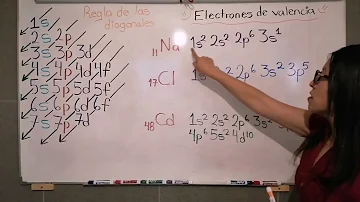 Regla de las diagonales
1s
2s 2p
3s 3p 3d
4s 4p 4d 4f
5s 5p 5d 5f
6s 6p 6d
7s 7p 7d
Electrones de valencia
₁₁Na 1s² 2s² 2p⁶ 3s¹
₁₇Cl 1s² 2s² 2p⁶ 3s² 3p⁵
₄₈Cd 1s² 2s² 2p⁶ 3s² 3p⁶
4p⁶ 5s² 4d¹⁰